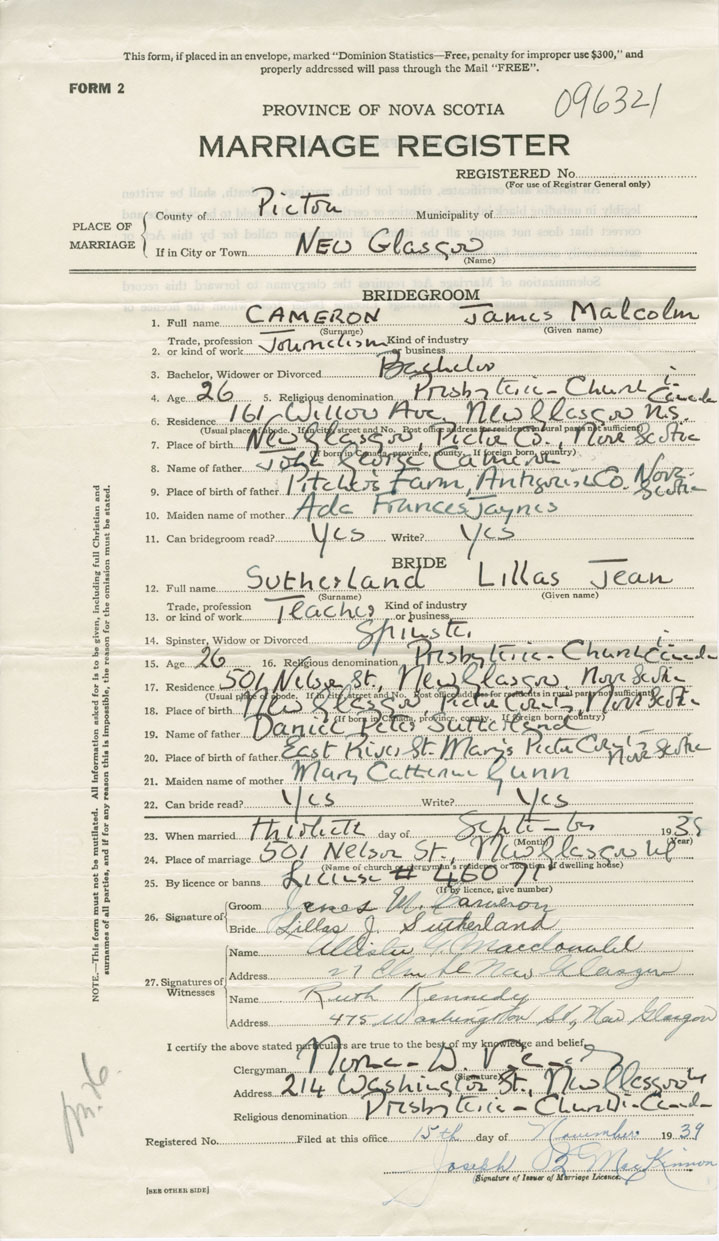 This form, if placed in an envelope, marked "Dominion Statistics—Free, penalty for improper use $300," and
properly addressed will pass through the Mail "FREE".
FORM 2
096321
PROVINCE OF NOVA SCOTIA
MARRIAGE REGISTER
REGISTERED No.
(For use of Registrar General only)
PLACE OF MARRIAGE
County of Pictou Municipality of
If in City or Town New Glasgow
(Name)
BRIDEGROOM
1. Full name CAMERON James Malcolm
(Surname) (Given name)
2. Trade, profession or kind of work Journalism Kind of industry or business
3. Bachelor, Widower or Divorced Bachelor
4. Age 26 5. Religious denomination Presbyterian Church in Canada
6. Residence 161 Willow Ave, New Glasgow N.S.
(Usual place of abode. If in city, street and No. Post office address for residents in rural part not sufficient)
7. Place of birth New Glasgow, Pictou Co., Nova Scotia
(If born in Canada, province, county. If foreign born, country)
8. Name of father John George Cameron
9. Place of birth of father Pitchers Farm, Antigonish Co. Nova Scotia
10. Maiden name of mother Ada Frances Jaynes
11. Can bridegroom read? Yes Write? Yes
BRIDE
12. Full name Sutherland Lillas Jean
(Surname) (Given name)
13. Trade, profession or kind of work Teacher Kind of industry or business
14. Spinster, Widow or Divorced Spinster
15. Age 26 16. Religious denomination Presbyterian Church in Canada
17. Residence 501 Nelson St., New Glasgow, Nova Scotia
(Usual place of abode. If in city, street and No. Post office address for residents in rural part not sufficient)
18. Place of birth New Glasgow Pictou County, Nova Scotia
(If born in Canada, province, county. If foreign born, country)
19. Name of father Daniel Peter Sutherland
20. Place of birth of father East River St. Marys Pictou County Nova Scotia
21. Maiden name of mother Mary Catherine Gunn
22. Can bride read? Yes Write? Yes
23. When married thirtieth day of September 1939
(Month) (Year)
24. Place of marriage 501 Nelson St., New Glasgow NS
(Name of church or clergyman's residence or location of dwelling house)
25. By licence or banns License # 46071
(If by licence, give number)
26. Signature of Groom James M. Cameron
Bride Lillas J. Sutherland
27. Signatures of Witnesses
Name Allister G. Macdonald
Address 27 New Glasgow
Name Ruth Kennedy
Address 475 Washington St, New Glasgow
I certify the above stated particulars are true to the best of my knowledge and belief.
Clergyman Norman D.
(Signature)
Address 214 Washington St., New Glasgow
Religious denomination Presbyterian Church in Canada
Registered No. Filed at this office 15th day of November 1939
Joseph MacKinnon
Signature of Issuer of Marriage Licence.
[SEE OTHER SIDE]
NOTE.—This form must not be mutilated. All information asked for is to be given, including full Christian and
surnames of all parties, and if for any reason this is impossible, the reason for the omission must be stated.